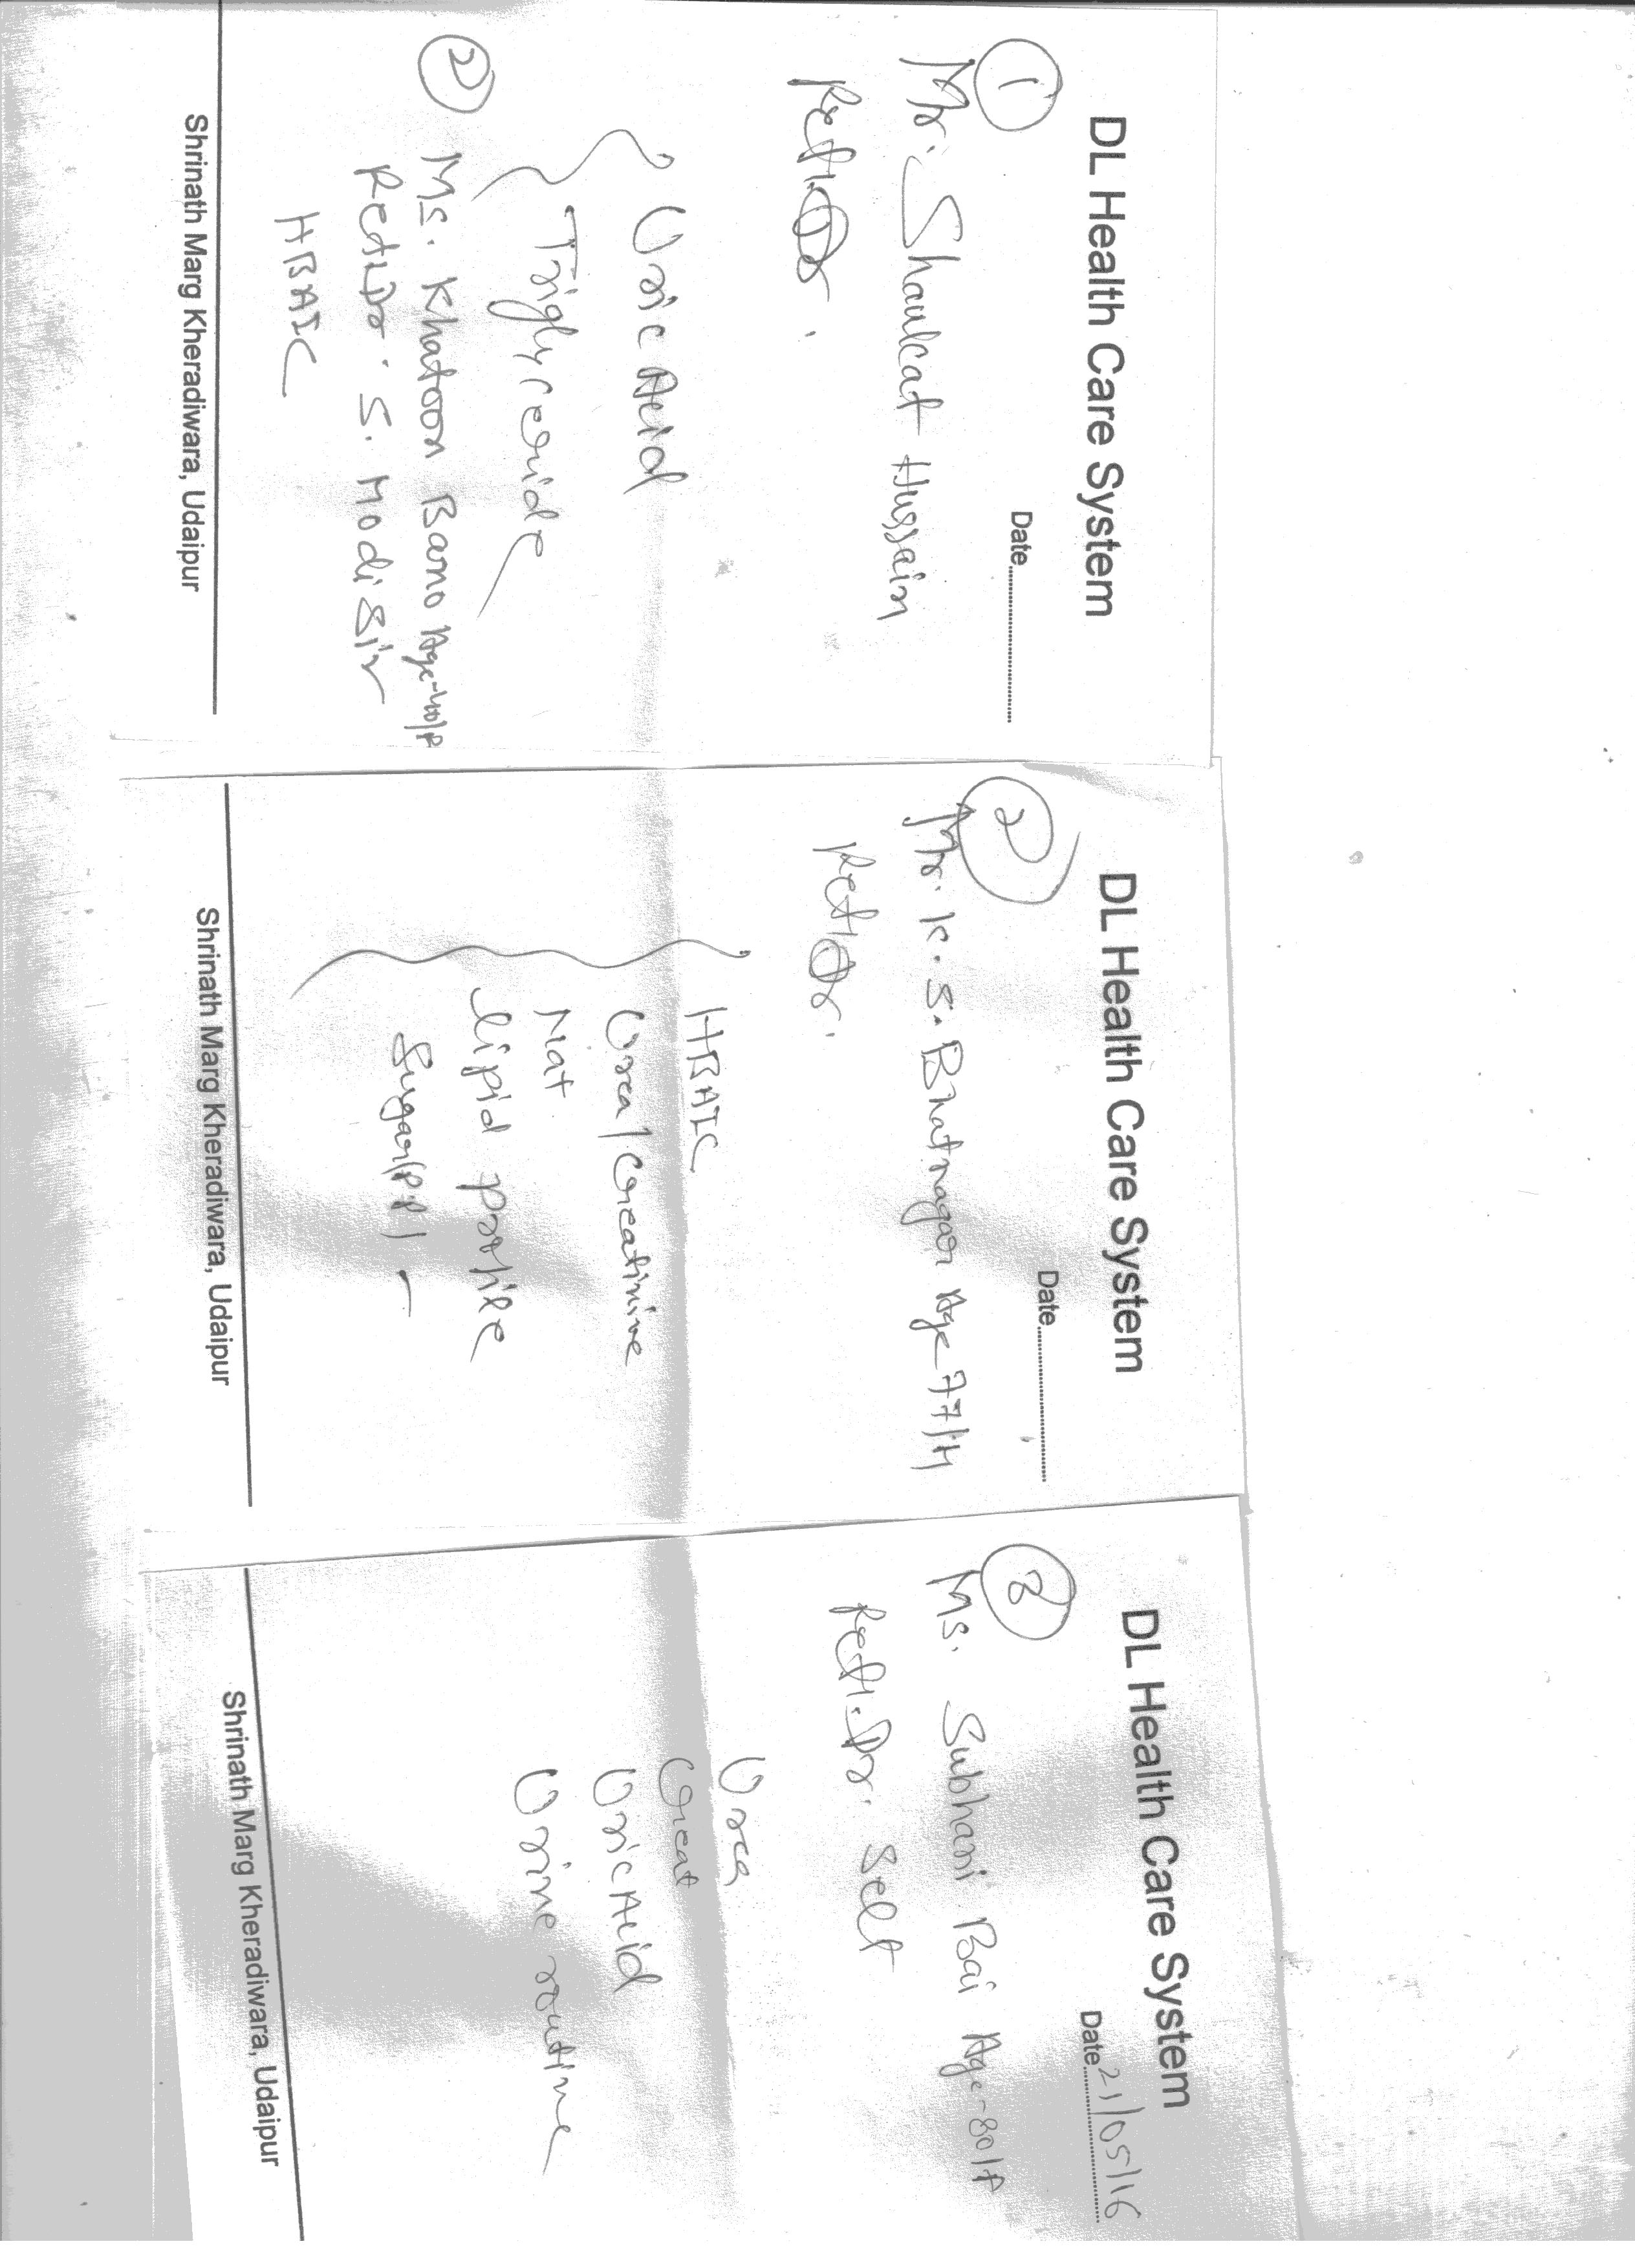 DL Health Care System
Date
①
Mr. Shaukat Hussain
Ref. Dr.
Uric Acid
Triglyceride
② Ms. Khatoon Bano Age-40/F
Ref. Dr. S. Modi Sir
HBAIC
Shrinath Marg Kheradiwara, Udaipur
DL Health Care System
Date
②
Mr. K. S. Bhatnagar Age 77/M
Ref. Dr.
HBAIC
Urea/Creatinine
Nat
lipid profile
Sugar(PP)
Shrinath Marg Kheradiwara, Udaipur
DL Health Care System
Date 21/05/16
Ms. Subhani Bai Age-80/F
Ref. Dr. Self
Urea
Creat
Uric Acid
Urine routine
Shrinath Marg Kheradiwara, Udaipur